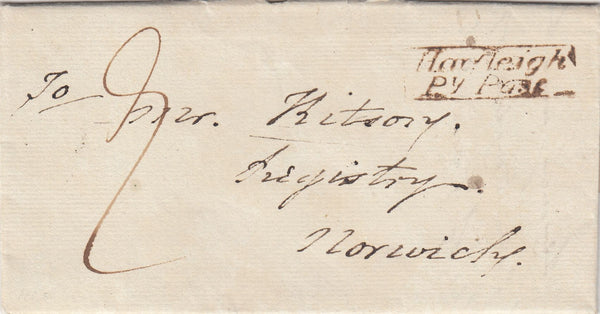 Hadleigh
Py Post
To Mr. Kitson,
Registry.
Norwich.